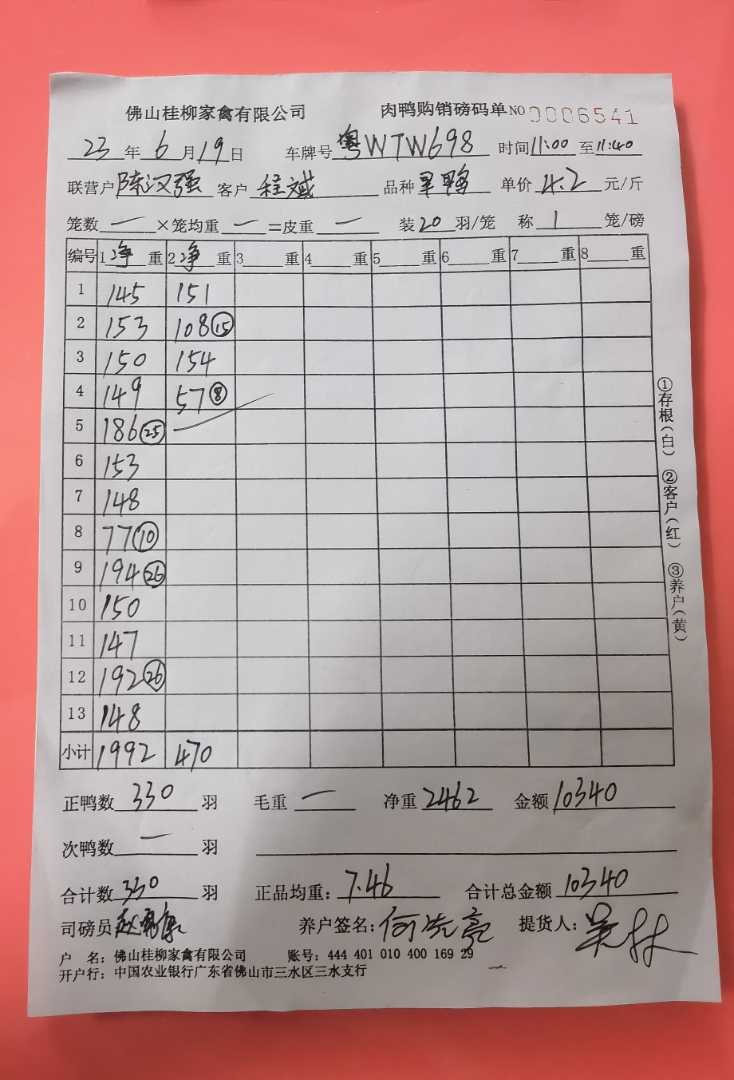 佛山桂柳家禽有限公司 肉鸭购销磅码单 NO 0006541
23年6月19日 车牌号粤WTW698 时间11:00至11:40
联营户陈汉强 客户程斌 品种旱鸭 单价4.2元/斤
笼数一×笼均重一=皮重一 装20羽/笼 称1笼/磅
编号 1净重 2净重 3重 4重 5重 6重 7重 8重
1 145 151
2 153 108⑮
3 150 154
4 149 57⑧
5 186㉕
6 153
7 148
8 77⑩
9 194㉖
10 150
11 147
12 192㉖
13 148
小计 1992 470
正鸭数330羽 毛重一 净重2462 金额10340
次鸭数一羽
合计数330羽 正品均重:7.46 合计总金额10340
司磅员 养户签名: 提货人:
户 名:佛山桂柳家禽有限公司 账号:444 401 010 400 169 29
开户行:中国农业银行广东省佛山市三水区三水支行
①存根(白) ②客户(红) ③养户(黄)